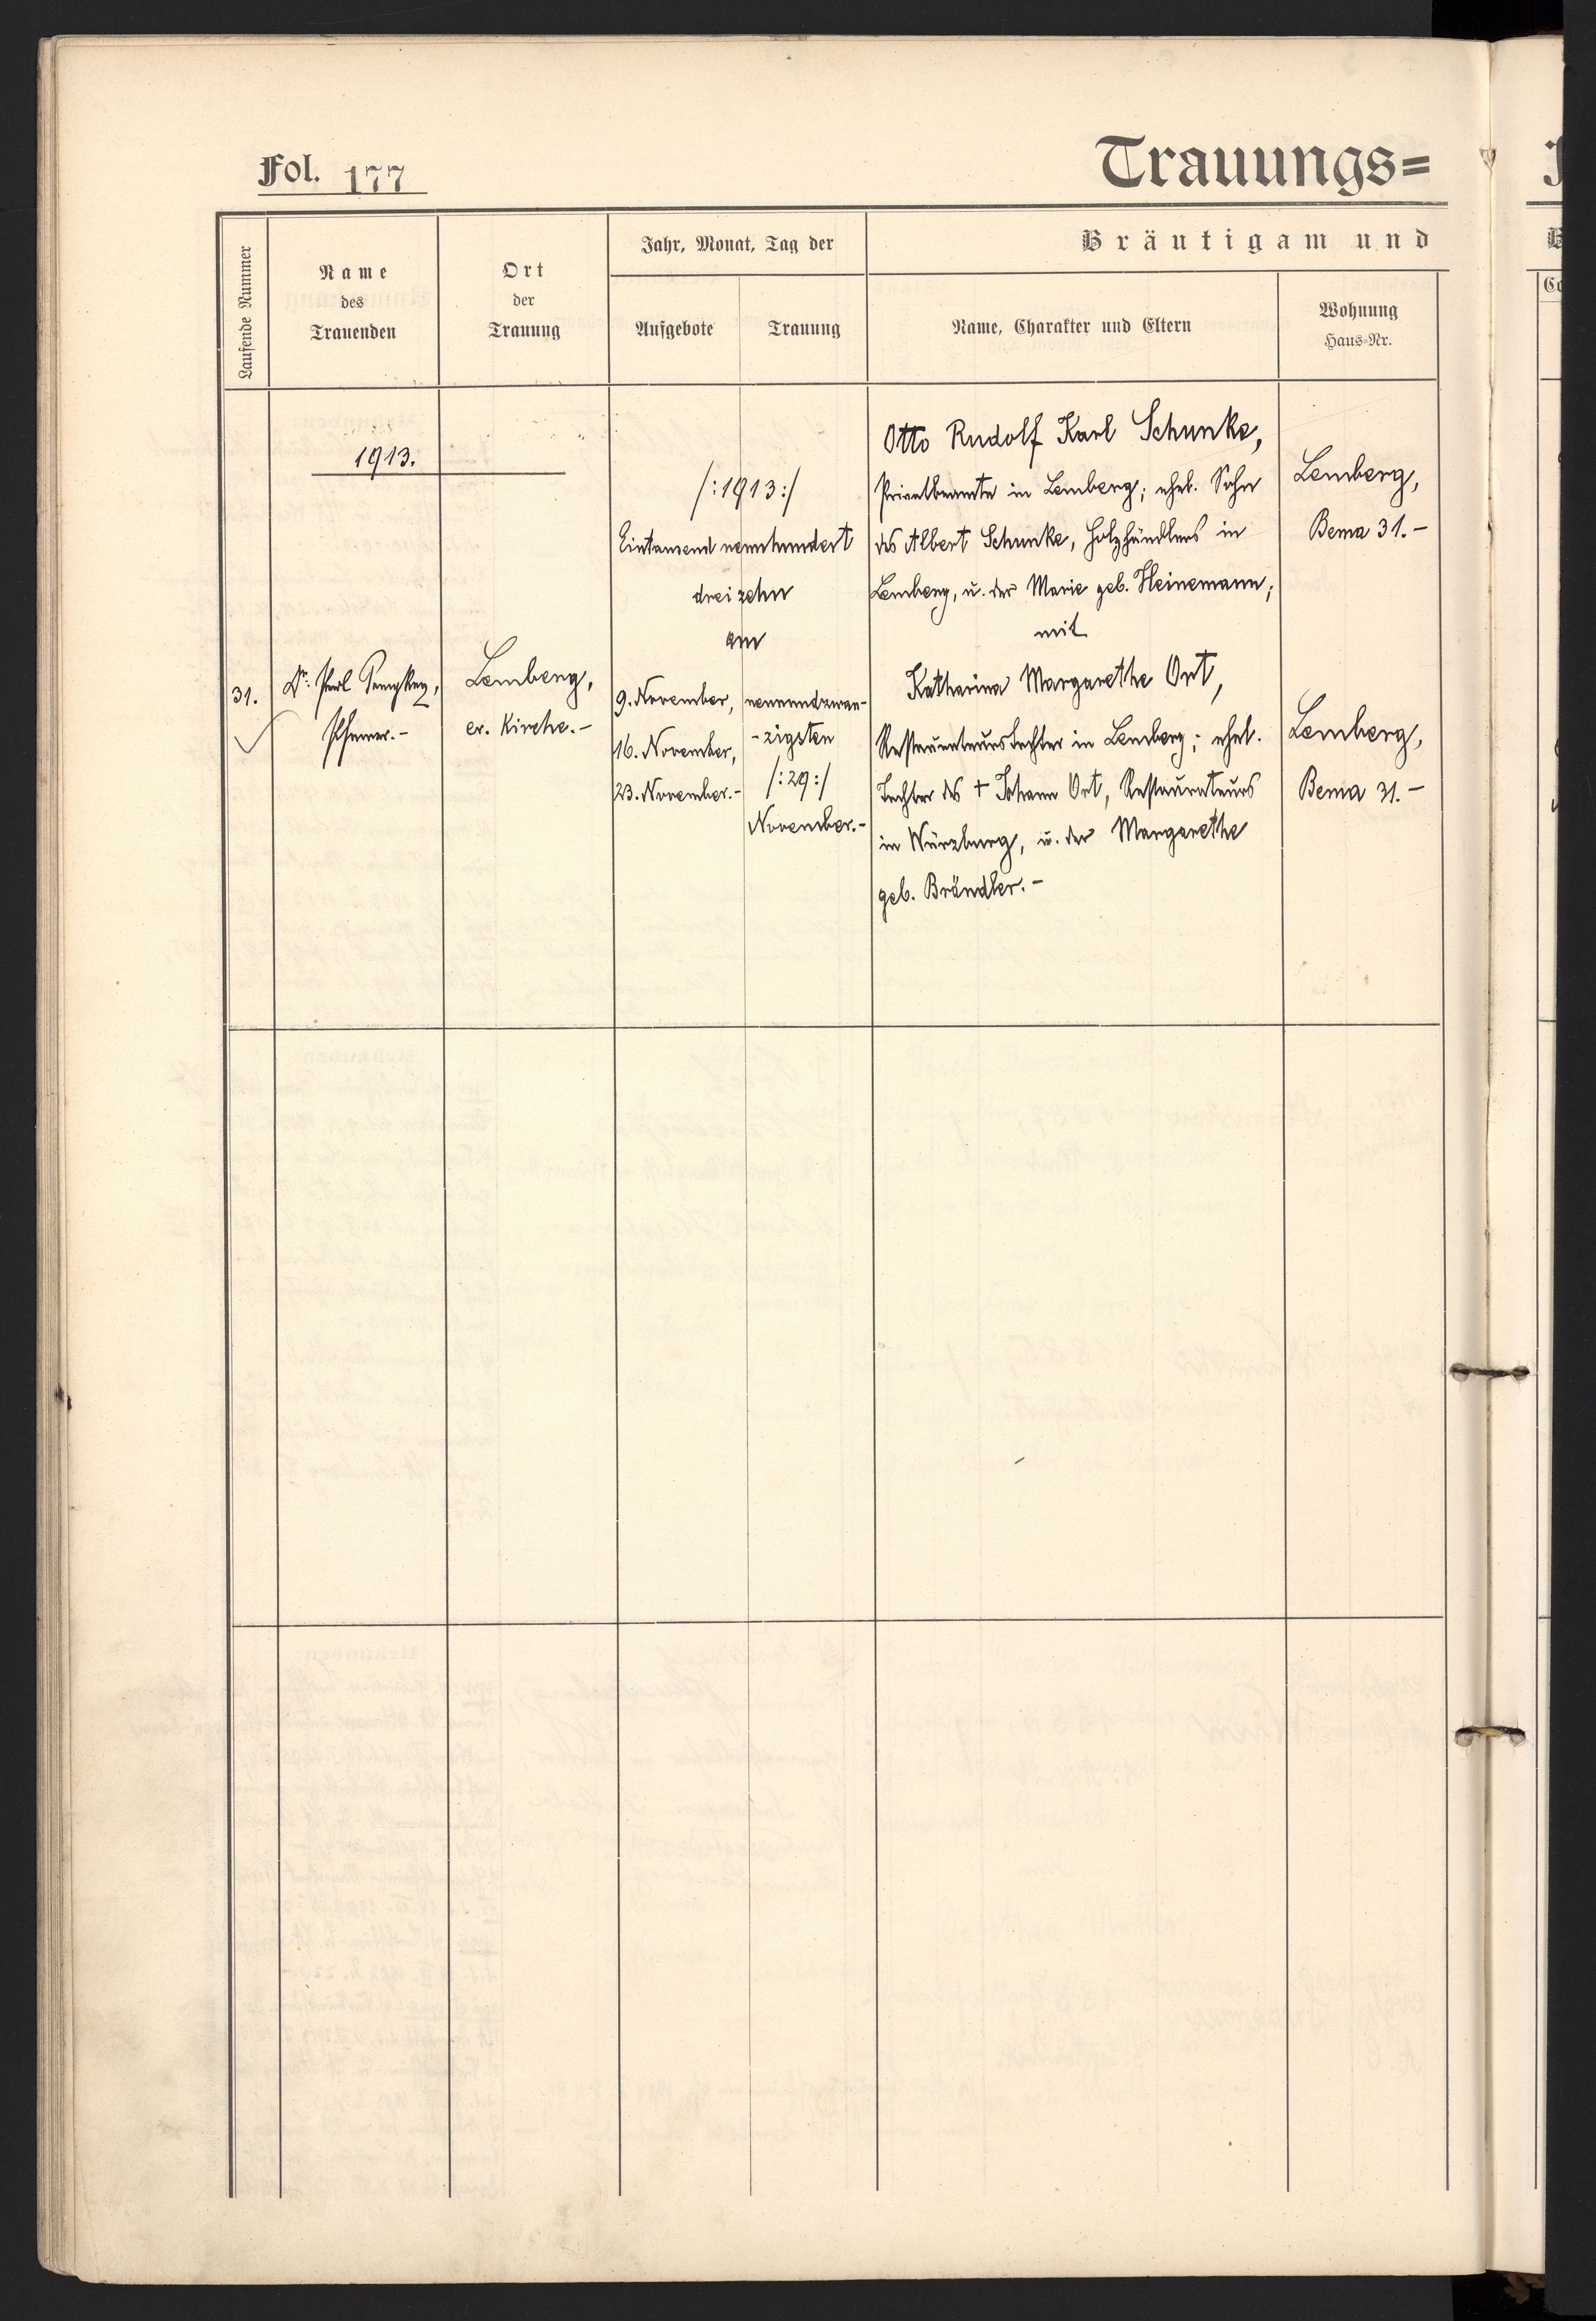 Fol. 177
Trauungs=
Laufende Nummer
Name
des
Trauenden
Ort
der
Trauung
Jahr, Monat, Tag der
Aufgebote
Trauung
Bräutigam und
Name, Charakter und Eltern
Wohnung
Haus-Nr.
1913.
31.
Dr. Paul
Pfarrer.-
Lemberg,
ev. Kirche.-
/:1913:/
Eintausend neunhundert
dreizehn
am
9. November,
16. November,
23. November.-
neunundzwan-
-zigsten
/:29:/
November.-
Otto Rudolf Karl Schunke,
Privatbeamte in Lemberg; ehel. Sohn
des Albert Schunke, Holzhändlers in
Lemberg, u. der Marie geb. Heinemann;
mit
Katharina Margarethe Ort,
Restaurateurstochter in Lemberg; ehel.
Tochter des + Johann Ort, Restaurateurs
in Würzburg, u. der Margarethe
geb. Brändler.-
Lemberg,
Bema 31.-
Lemberg,
Bema 31.-